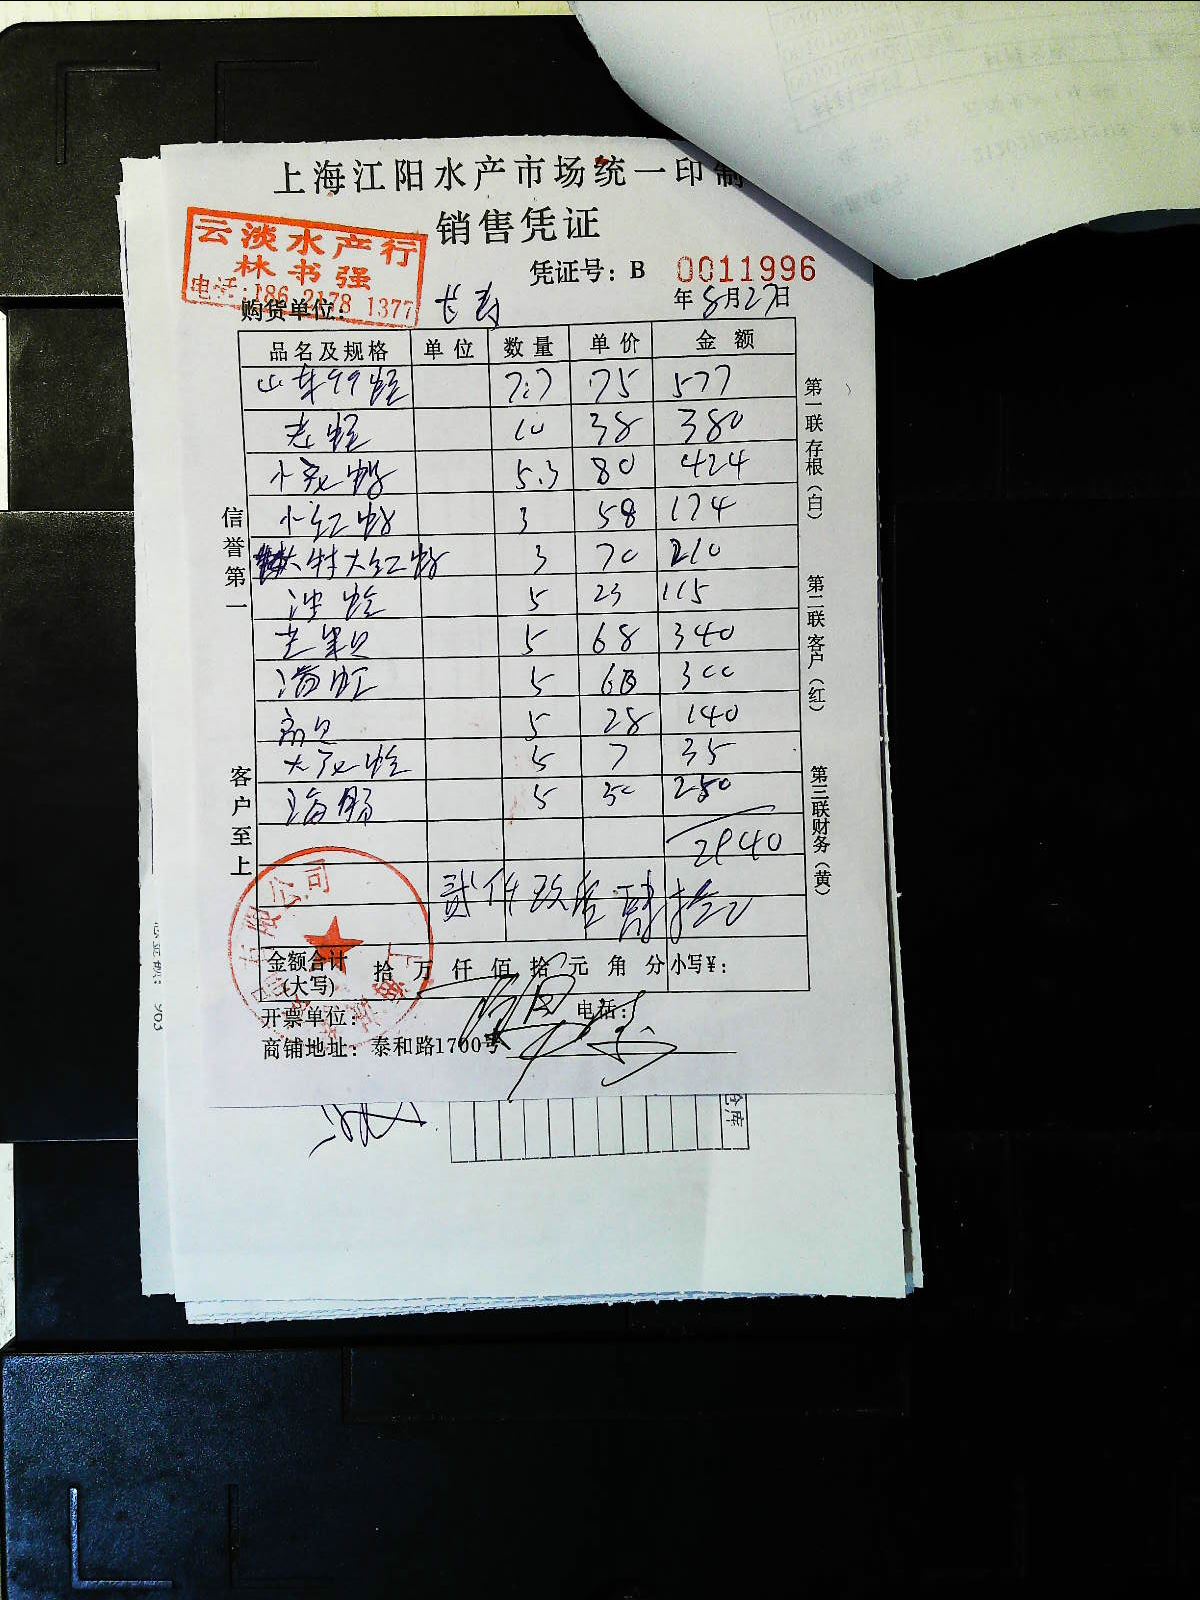 上海江阳水产市场统一印制
销售凭证
云淡水产行
林书强
电话:186 2178 1377
凭证号: B 0011996
购货单位: 长寿 年8月27日
品名及规格 单位 数量 单价 金额
7.7 75 577
10 38 380
5.3 80 424
小红 3 58 174
特大红 3 70 210
沙蛤 5 23 115
芒果贝 5 68 340
5 60 300
扇贝 5 28 140
大花蛤 5 7 35
海肠 5 50 250
2940
贰仟玖佰肆拾元
信誉第一
客户至上
第一联存根(白)
第二联客户(红)
第三联财务(黄)
有限公司
上海
金额合计(大写) 拾 万 仟 佰 拾 元 角 分 小写¥:
开票单位: 电话:
商铺地址: 泰和路1700号
仓库